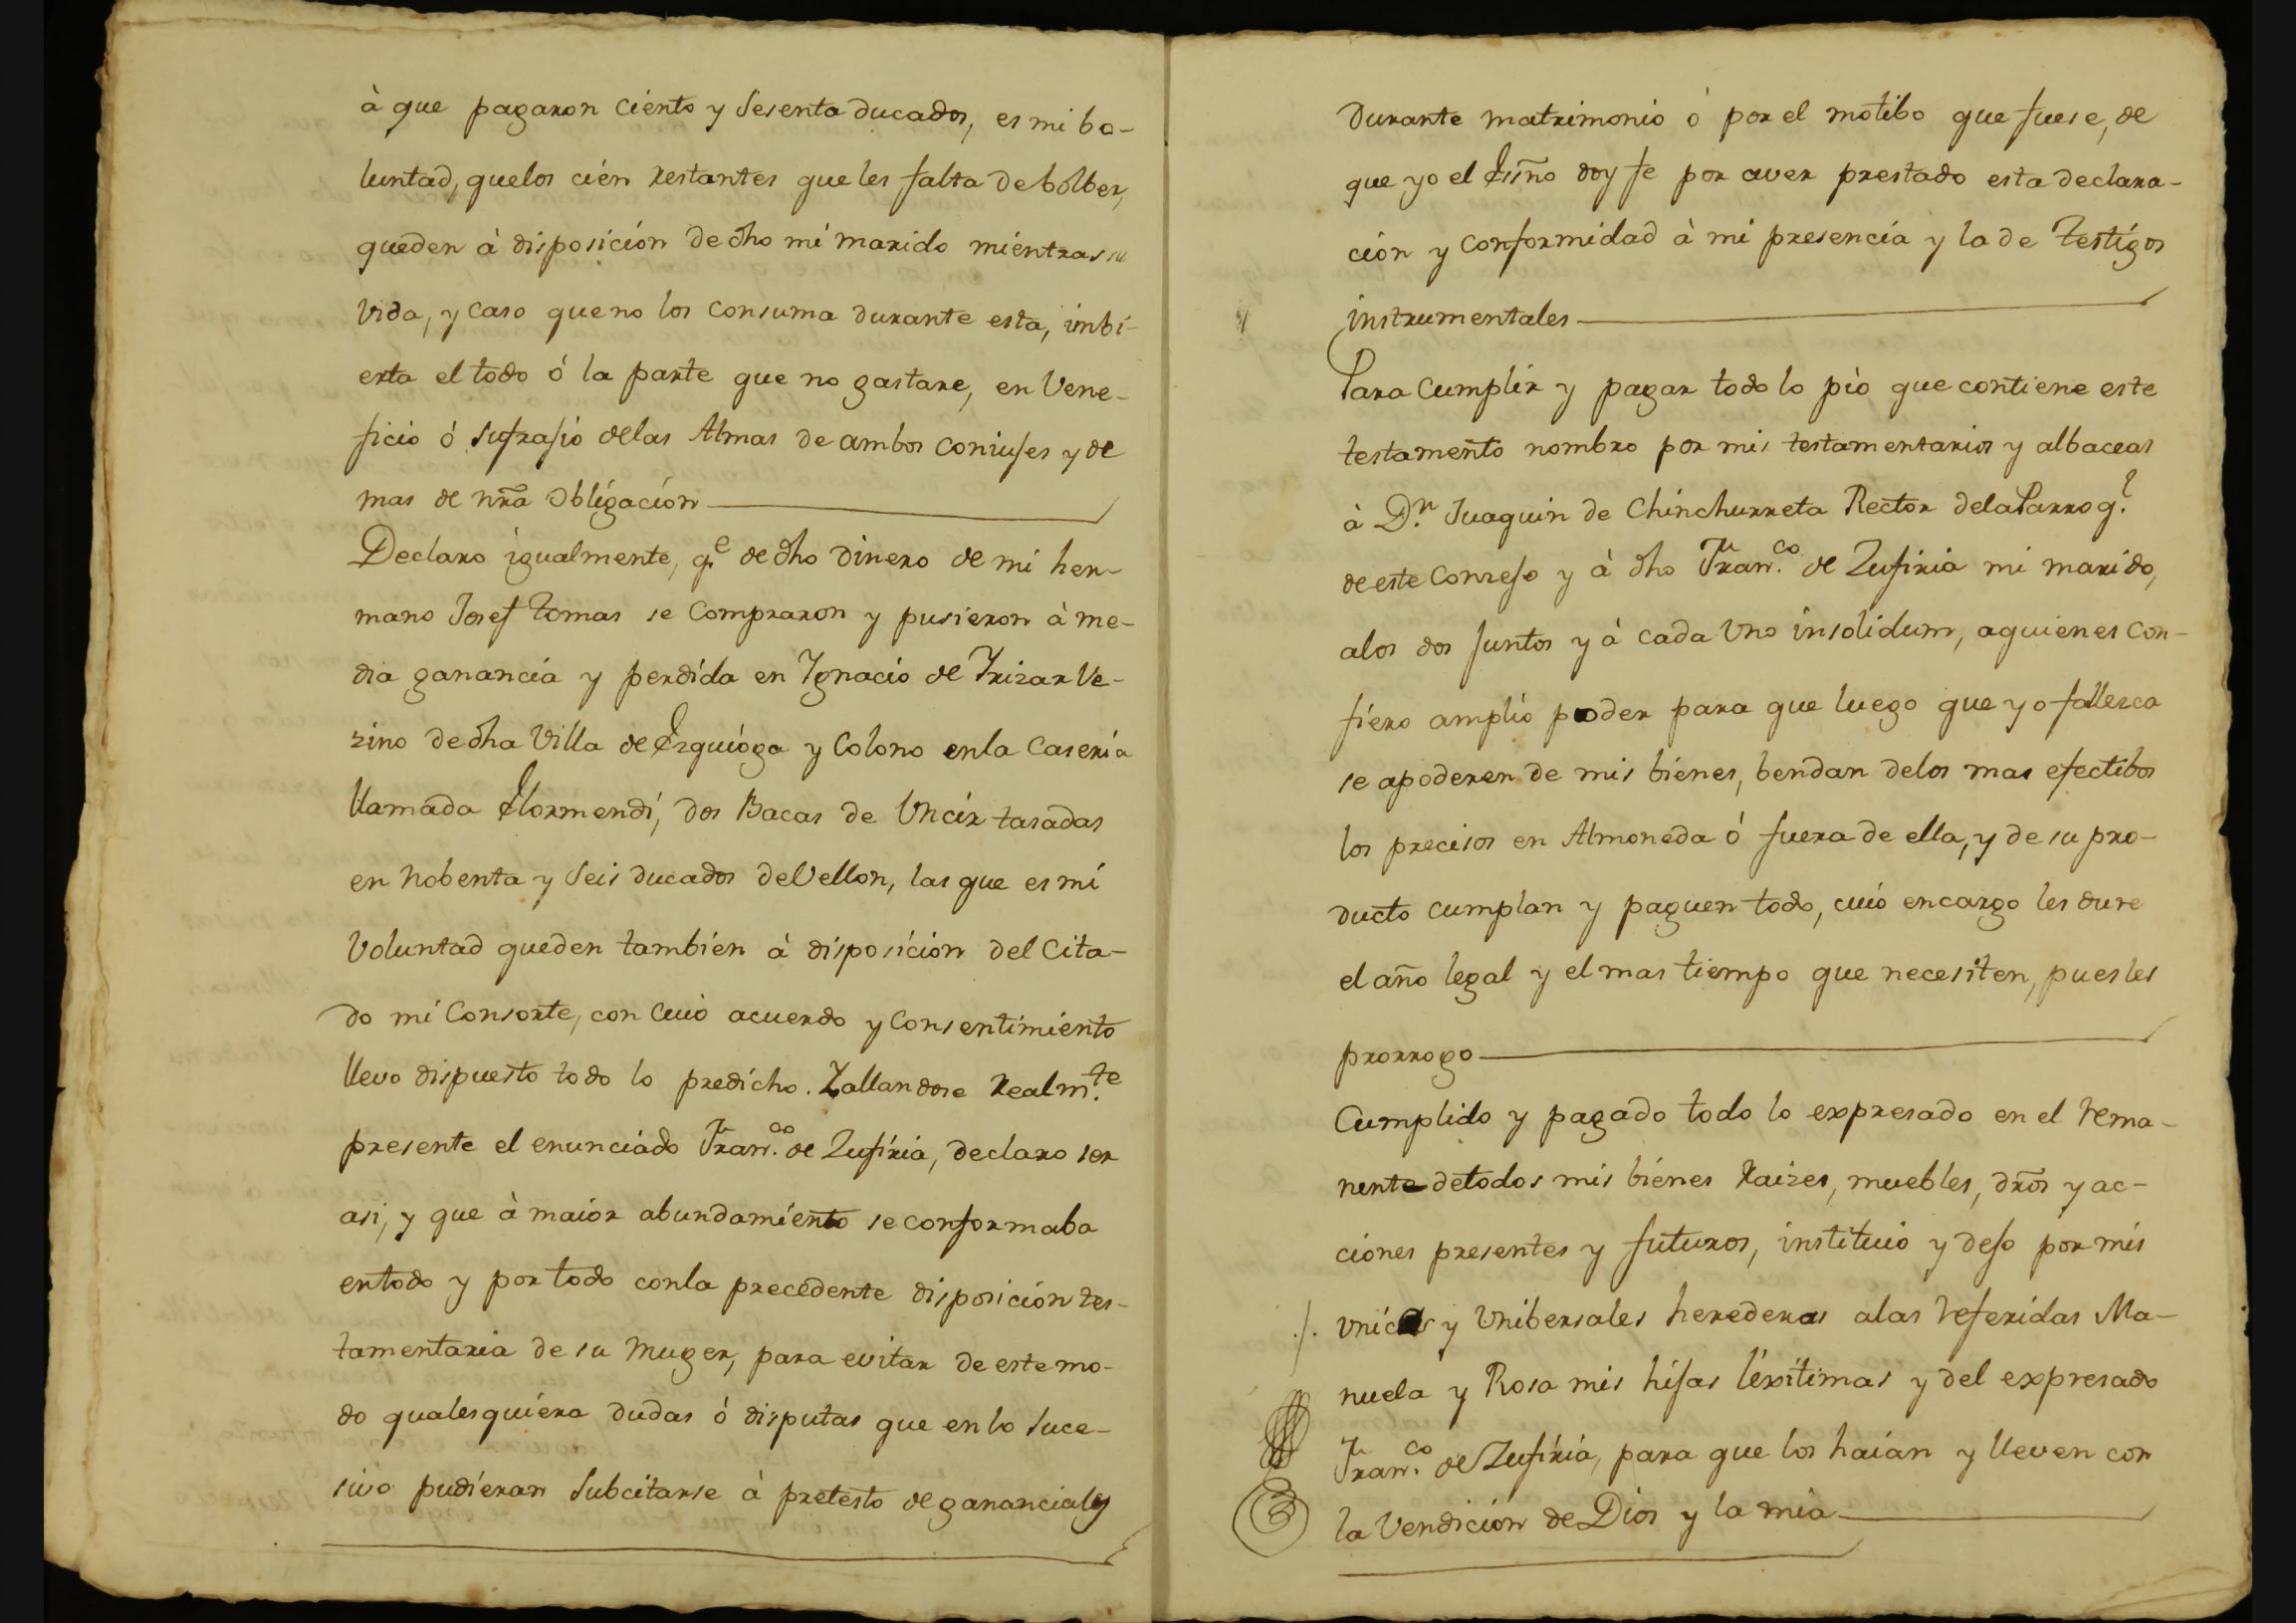 à que pagaron ciento y sesenta ducados, es mi bo-
luntad, que los cien restantes que les falta de bolber,
queden à disposición de dho mi marido mientras su
vida, y caso que no los consuma durante esta, imbi-
erta el todo ó la parte que no gastare, en Vene-
ficio ó sufrasio de las Almas de ambos coniuses y de
mas de nrã obligación
Declaro igualmente, q.e de dho dinero de mi her-
mano Josef Tomas se compraron y pusieron à me-
dia ganancia y perdida en Ygnacio de Yrizar Ve-
zino de dha Villa de Ezquioga y Colono en la Caseria
llamada Elormendi, dos Bacas de Uncir tasadas
en nobenta y seis ducados de Vellon, las que es mi
Voluntad queden tambien à disposición del Cita-
do mi Consorte, con cuio acuerdo y consentimiento
llevo dispuesto todo lo predicho. Zallandose Realm.te
presente el enunciado Fran.co de Zufiria, declaro ser
asi, y que à maior abundamiento se conformaba
en todo y por todo con la precedente disposición tes-
tamentaria de su Muger, para evitar de este mo-
do qualesquiera dudas ó disputas que en lo suce-
sivo pudieran subcitarse à pretesto de gananciales
durante matrimonio ó por el motibo que fuese, de
que yo el Essño doy fe por aver prestado esta declara-
ción y conformidad à mi presencia y la de testigos
instrumentales
Para cumplir y pagar todo lo pio que contiene este
testamento nombro por mis testamentarios y albaceas
à D.n Juaquin de Chinchurreta Rector de la Parroq.l
de este Conzejo y à dho Fran.co de Zufiria mi marido,
a los dos juntos y à cada uno insolidum, a quienes con-
fiero amplio poder para que luego que yo fallezca
se apoderen de mis bienes, bendan de los mas efectibos
los precisos en Almoneda ó fuera de ella, y de su pro-
ducto cumplan y paguen todo, cuio encargo les dure
el año legal y el mas tiempo que necesiten, pues les
prorrogo
Cumplido y pagado todo lo expresado en el rema-
nente de todos mis bienes raizes, muebles, drõs y ac-
ciones presentes y futuros, instituio y dejo por mis
unicas y Unibersales herederas a las referidas Ma-
nuela y Rosa mis hijas lexitimas y del expresado
Fran.co de Zufiria, para que los haian y lleven con
la Vendición de Dios y la mia